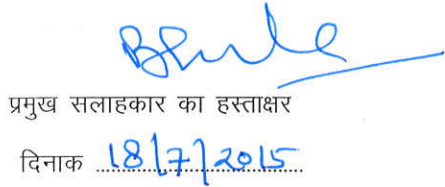 प्रमुख सलाहकार का हस्ताक्षर
दिनाक 18/7/2015